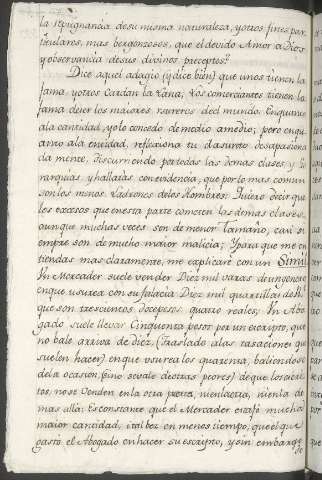 la repugnancia desu misma naturaleza, yotros fines par
ticulares, mas bergonzosos, que el devido Amor a Dios
y observancia desus divinos preceptos.
Dice aquel adagio (y dice bien) que unos tienen la
fama, yotros Cardan la Lana; Los comerciantes tienen la
fama deser los maiores rateros del mundo: Enquanto
ala cantidad, yolo concedo de medio amedio; pero enqu
anto ala entidad, reflexiona tu dasunto desapasiona
da mente, discurriendo portodas las demas clases, y Ge
rarquias, y hallarás con evidencia, que por lo mas comun
son los menos Ladrones delos Hombres: Quiero decir que
los excesos que enesta parte cometen las demas clases,
aunque muchas veces son de menor tamaño, casi si
empre son de mucho maior malicia; Ypara que me en
tiendas mas claramente, me explicaré con un Simil.
Un Mercader suele vender Diez mil varas deungenero
enque usurea con su falacia Diez mil quartillas de
que son trescientos doce pesos, quatro reales; Un Abo
gado suele llevar Cinquenta pesos por un escripto, que
no bale arriva de diez (Traslado alas tasaciones que
suelen hacer) enque usurea los quarenta, baliendose
dela ocasion, (sino sevale de otras peores) de que los
tos, nose Venden enla otra puerta, nienlaotra, nienla de
mas allá: Es constante que el Mercader estafó mucha
maior cantidad, i tal bez en menos tiempo, que el que
gastó el Abogado enhacer su escripto, y sin embargo